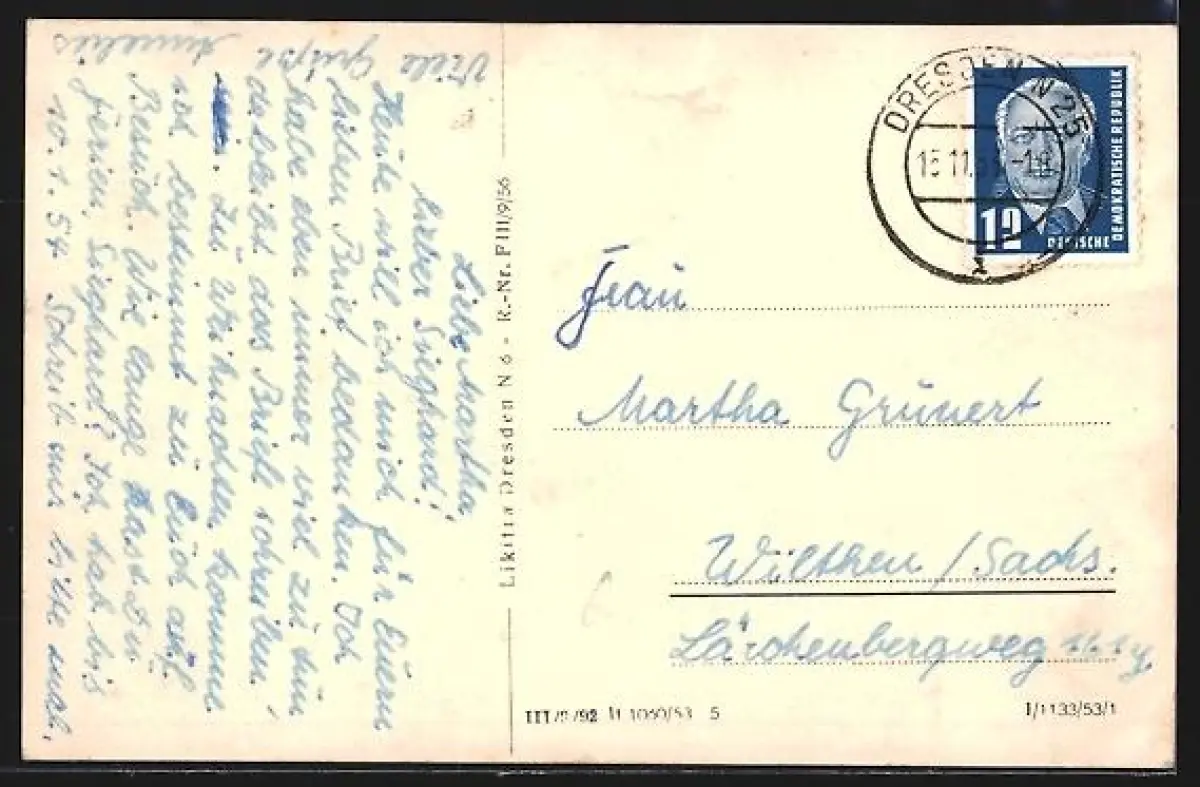 Liebe Martha,
lieber Sieghard!
Heute will ich mich für Euern
lieben Brief bedanken. Ich
habe eben immer viel zu tun
da bleibt das Briefe schreiben
. Zu Weihnachten komme
ich bestimmt zu Euch auf
Besuch. Wie lange hast Du
Ferien, Sieghard? Ich hab bis
10.1.54 Schreib mir bitte mal,
Viele Grüße
Likitta Dresden N 6 - R.-Nr. F III/9/56
DRESDEN N 25
15.11.
12
DEUTSCHE
DEMOKRATISCHE REPUBLIK
Frau
Martha Grünert
Wilthen/Sachs.
Lärchenbergweg
III/9/92 M 1050/53 5
I/1133/53/1